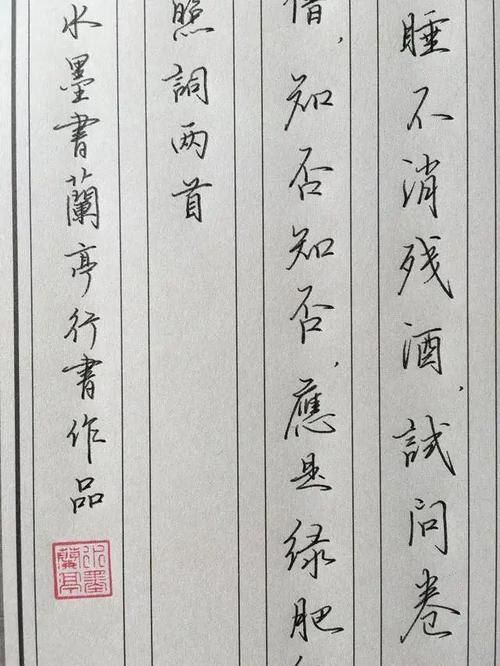 睡不消残酒，试问卷
惜，知否知否，應是绿肥
照詞两首
水墨書蘭亭行書作品
水墨蘭亭